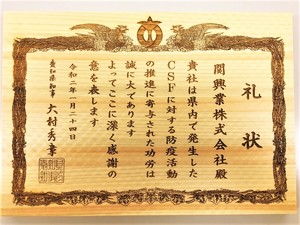 礼状
関興業株式会社殿
貴社は県内で発生した
CSFに対する防疫活動
の推進に寄与された功労は
誠に大であります
よってここに深く感謝の
意を表します
令和二年二月二十四日
愛知県知事 大村秀章